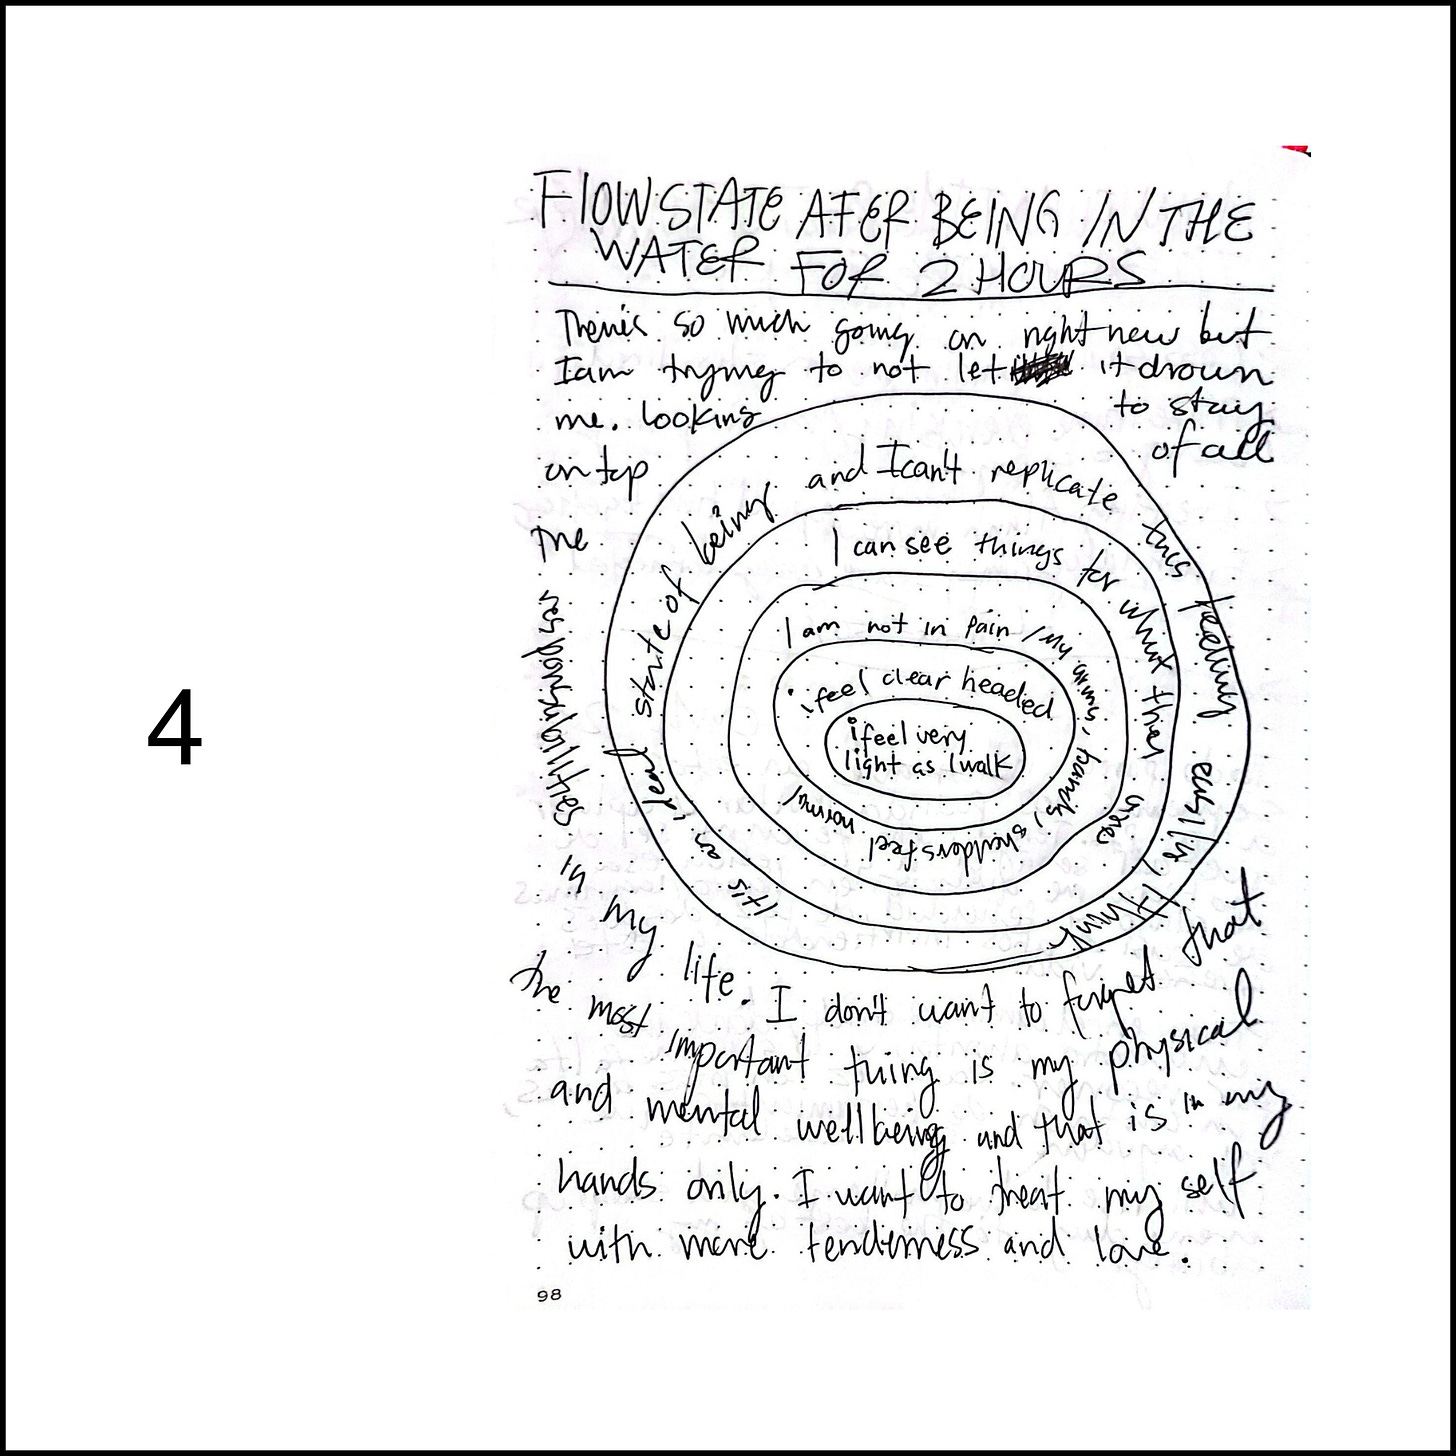 4
FLOW STATE AFER BEING IN THE
WATER FOR 2 HOURS
There's so much going on right now but
I am trying to not let it drown
me. looking to stay
on top of all
the
responsibilities
in
my
life. I don't want to forget that
the most important thing is my physical
and mental wellbeing and that is in my
hands only. I want to treat my self
with more tenderness and love.
It is an ideal state of being and I can't replicate this feeling easily, I think
I can see things for what they are
I am not in pain / my arms, hands, shoulders feel normal
i feel clear headed
i feel very
light as I walk
98